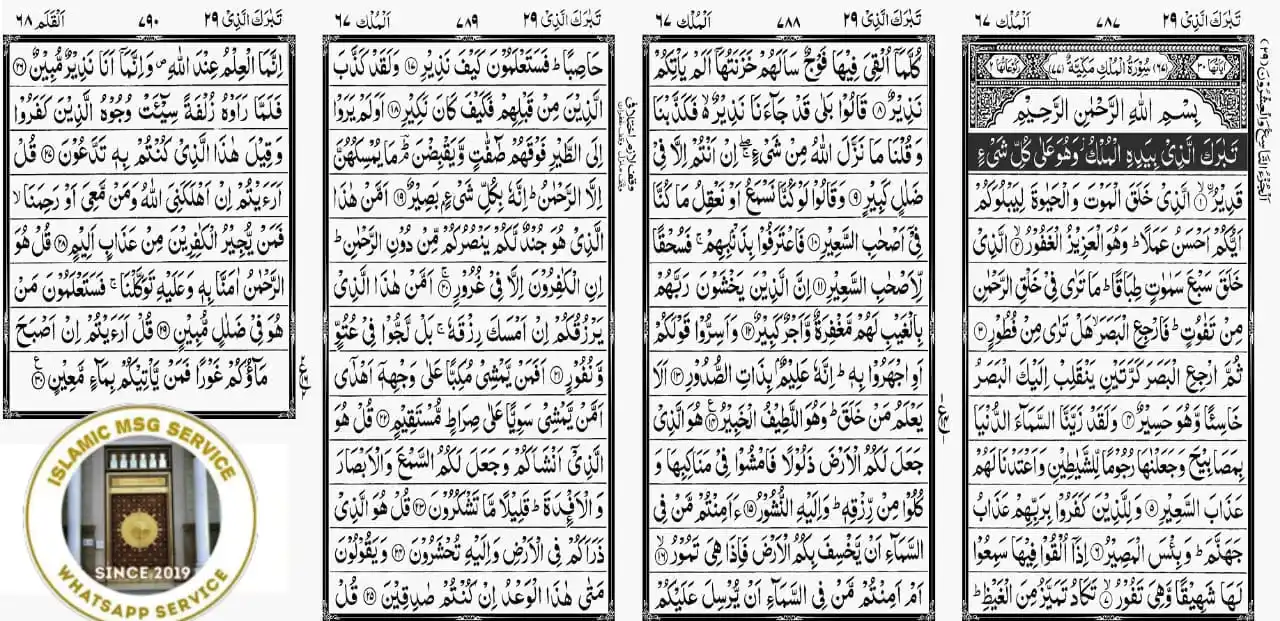 تَبٰرَكَ الَّذِیْ ٢٩ ٧٨٧ اَلْمُلْك ٦٧
اٰیَاتُهَا ٣٠ (٦٧) سُوْرَةُ الْمُلْكِ مَكِّیَّةٌ (٧٧) رُكُوْعَاتُهَا ٢
بِسْمِ اللّٰهِ الرَّحْمٰنِ الرَّحِیْمِ
تَبٰرَكَ الَّذِیْ بِیَدِهِ الْمُلْكُ٘ وَهُوَ عَلٰی كُلِّ شَیْءٍ
قَدِیْرُۨ ۙ﴿١﴾ الَّذِیْ خَلَقَ الْمَوْتَ وَالْحَیٰوةَ لِیَبْلُوَكُمْ
اَیُّكُمْ اَحْسَنُ عَمَلًا ؕ وَهُوَ الْعَزِیْزُ الْغَفُوْرُ ۙ﴿٢﴾ الَّذِیْ
خَلَقَ سَبْعَ سَمٰوٰتٍ طِبَاقًا ؕ مَا تَرٰی فِیْ خَلْقِ الرَّحْمٰنِ
مِنْ تَفٰوُتٍ ؕ فَارْجِعِ الْبَصَرَ ۙ هَلْ تَرٰی مِنْ فُطُوْرٍ ﴿٣﴾
ثُمَّ ارْجِعِ الْبَصَرَ كَرَّتَیْنِ یَنْقَلِبْ اِلَیْكَ الْبَصَرُ
خَاسِئًا وَّهُوَ حَسِیْرٌ ﴿٤﴾ وَلَقَدْ زَیَّنَّا السَّمَآءَ الدُّنْیَا
بِمَصَابِیْحَ وَجَعَلْنٰهَا رُجُوْمًا لِّلشَّیٰطِیْنِ وَاَعْتَدْنَا لَهُمْ
عَذَابَ السَّعِیْرِ ﴿٥﴾ وَلِلَّذِیْنَ كَفَرُوْا بِرَبِّهِمْ عَذَابُ
جَهَنَّمَ ؕ وَبِئْسَ الْمَصِیْرُ ﴿٦﴾ اِذَاۤ اُلْقُوْا فِیْهَا سَمِعُوْا
لَهَا شَهِیْقًا وَّهِیَ تَفُوْرُ ۙ﴿٧﴾ تَكَادُ تَمَیَّزُ مِنَ الْغَیْظِ ؕ
تَبٰرَكَ الَّذِیْ ٢٩ ٧٨٨ اَلْمُلْك ٦٧
كُلَّمَاۤ اُلْقِیَ فِیْهَا فَوْجٌ سَاَلَهُمْ خَزَنَتُهَاۤ اَلَمْ یَاْتِكُمْ
نَذِیْرٌ ﴿٨﴾ قَالُوْا بَلٰی قَدْ جَآءَنَا نَذِیْرٌ ۙ۬ فَكَذَّبْنَا
وَقُلْنَا مَا نَزَّلَ اللّٰهُ مِنْ شَیْءٍ ۖۚ اِنْ اَنْتُمْ اِلَّا فِیْ
ضَلٰلٍ كَبِیْرٍ ﴿٩﴾ وَقَالُوْا لَوْ كُنَّا نَسْمَعُ اَوْ نَعْقِلُ مَا كُنَّا
فِیْۤ اَصْحٰبِ السَّعِیْرِ ﴿١٠﴾ فَاعْتَرَفُوْا بِذَنْۢبِهِمْ ۚ فَسُحْقًا
لِّاَصْحٰبِ السَّعِیْرِ ﴿١١﴾ اِنَّ الَّذِیْنَ یَخْشَوْنَ رَبَّهُمْ
بِالْغَیْبِ لَهُمْ مَّغْفِرَةٌ وَّاَجْرٌ كَبِیْرٌ ﴿١٢﴾ وَاَسِرُّوْا قَوْلَكُمْ
اَوِ اجْهَرُوْا بِهٖ ؕ اِنَّهٗ عَلِیْمٌۢ بِذَاتِ الصُّدُوْرِ ﴿١٣﴾ اَلَا
یَعْلَمُ مَنْ خَلَقَ ؕ وَهُوَ اللَّطِیْفُ الْخَبِیْرُ ﴿١٤﴾ هُوَ الَّذِیْ
جَعَلَ لَكُمُ الْاَرْضَ ذَلُوْلًا فَامْشُوْا فِیْ مَنَاكِبِهَا وَ
كُلُوْا مِنْ رِّزْقِهٖ ؕ وَاِلَیْهِ النُّشُوْرُ ﴿١٥﴾ ءَاَمِنْتُمْ مَّنْ فِی
السَّمَآءِ اَنْ یَّخْسِفَ بِكُمُ الْاَرْضَ فَاِذَا هِیَ تَمُوْرُ ۙ﴿١٦﴾
اَمْ اَمِنْتُمْ مَّنْ فِی السَّمَآءِ اَنْ یُّرْسِلَ عَلَیْكُمْ
تَبٰرَكَ الَّذِیْ ٢٩ ٧٨٩ اَلْمُلْك ٦٧
حَاصِبًا ؕ فَسَتَعْلَمُوْنَ كَیْفَ نَذِیْرِ ﴿١٧﴾ وَلَقَدْ كَذَّبَ
الَّذِیْنَ مِنْ قَبْلِهِمْ فَكَیْفَ كَانَ نَكِیْرِ ﴿١٨﴾ اَوَلَمْ یَرَوْا
اِلَی الطَّیْرِ فَوْقَهُمْ صٰٓفّٰتٍ وَّیَقْبِضْنَ ؔۘؕ مَا یُمْسِكُهُنَّ
اِلَّا الرَّحْمٰنُ ؕ اِنَّهٗ بِكُلِّ شَیْءٍۭ بَصِیْرٌ ﴿١٩﴾ اَمَّنْ هٰذَا
الَّذِیْ هُوَ جُنْدٌ لَّكُمْ یَنْصُرُكُمْ مِّنْ دُوْنِ الرَّحْمٰنِ ؕ
اِنِ الْكٰفِرُوْنَ اِلَّا فِیْ غُرُوْرٍ ۚ﴿٢٠﴾ اَمَّنْ هٰذَا الَّذِیْ
یَرْزُقُكُمْ اِنْ اَمْسَكَ رِزْقَهٗ ۚ بَلْ لَّجُّوْا فِیْ عُتُوٍّ
وَّنُفُوْرٍ ﴿٢١﴾ اَفَمَنْ یَّمْشِیْ مُكِبًّا عَلٰی وَجْهِهٖۤ اَهْدٰۤی
اَمَّنْ یَّمْشِیْ سَوِیًّا عَلٰی صِرَاطٍ مُّسْتَقِیْمٍ ﴿٢٢﴾ قُلْ هُوَ
الَّذِیْۤ اَنْشَاَكُمْ وَجَعَلَ لَكُمُ السَّمْعَ وَالْاَبْصَارَ
وَالْاَفْـِٕدَةَ ؕ قَلِیْلًا مَّا تَشْكُرُوْنَ ﴿٢٣﴾ قُلْ هُوَ الَّذِیْ
ذَرَاَكُمْ فِی الْاَرْضِ وَاِلَیْهِ تُحْشَرُوْنَ ﴿٢٤﴾ وَیَقُوْلُوْنَ
مَتٰی هٰذَا الْوَعْدُ اِنْ كُنْتُمْ صٰدِقِیْنَ ﴿٢٥﴾ قُلْ
تَبٰرَكَ الَّذِیْ ٢٩ ٧٩٠ اَلْقَلَم ٦٨
اِنَّمَا الْعِلْمُ عِنْدَ اللّٰهِ ۪ وَاِنَّمَاۤ اَنَا نَذِیْرٌ مُّبِیْنٌ ﴿٢٦﴾
فَلَمَّا رَاَوْهُ زُلْفَةً سِیْٓـَٔتْ وُجُوْهُ الَّذِیْنَ كَفَرُوْا
وَقِیْلَ هٰذَا الَّذِیْ كُنْتُمْ بِهٖ تَدَّعُوْنَ ﴿٢٧﴾ قُلْ
اَرَءَیْتُمْ اِنْ اَهْلَكَنِیَ اللّٰهُ وَمَنْ مَّعِیَ اَوْ رَحِمَنَا ۙ
فَمَنْ یُّجِیْرُ الْكٰفِرِیْنَ مِنْ عَذَابٍ اَلِیْمٍ ﴿٢٨﴾ قُلْ هُوَ
الرَّحْمٰنُ اٰمَنَّا بِهٖ وَعَلَیْهِ تَوَكَّلْنَا ۚ فَسَتَعْلَمُوْنَ مَنْ
هُوَ فِیْ ضَلٰلٍ مُّبِیْنٍ ﴿٢٩﴾ قُلْ اَرَءَیْتُمْ اِنْ اَصْبَحَ
مَآؤُكُمْ غَوْرًا فَمَنْ یَّاْتِیْكُمْ بِمَآءٍ مَّعِیْنٍ ﴿٣٠﴾
ISLAMIC MSG SERVICE
SINCE 2019
WHATSAPP SERVICE